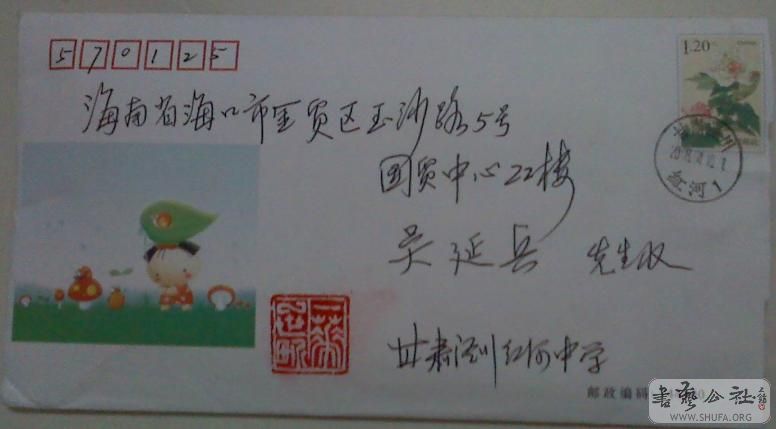 570125
1.20
海南省海口市金贸区玉沙路5号
国贸中心22楼
吴延兵 先生收
红河1
甘肃泾川红河中学
邮政编码
书艺公社
WWW.SHUFA.ORG